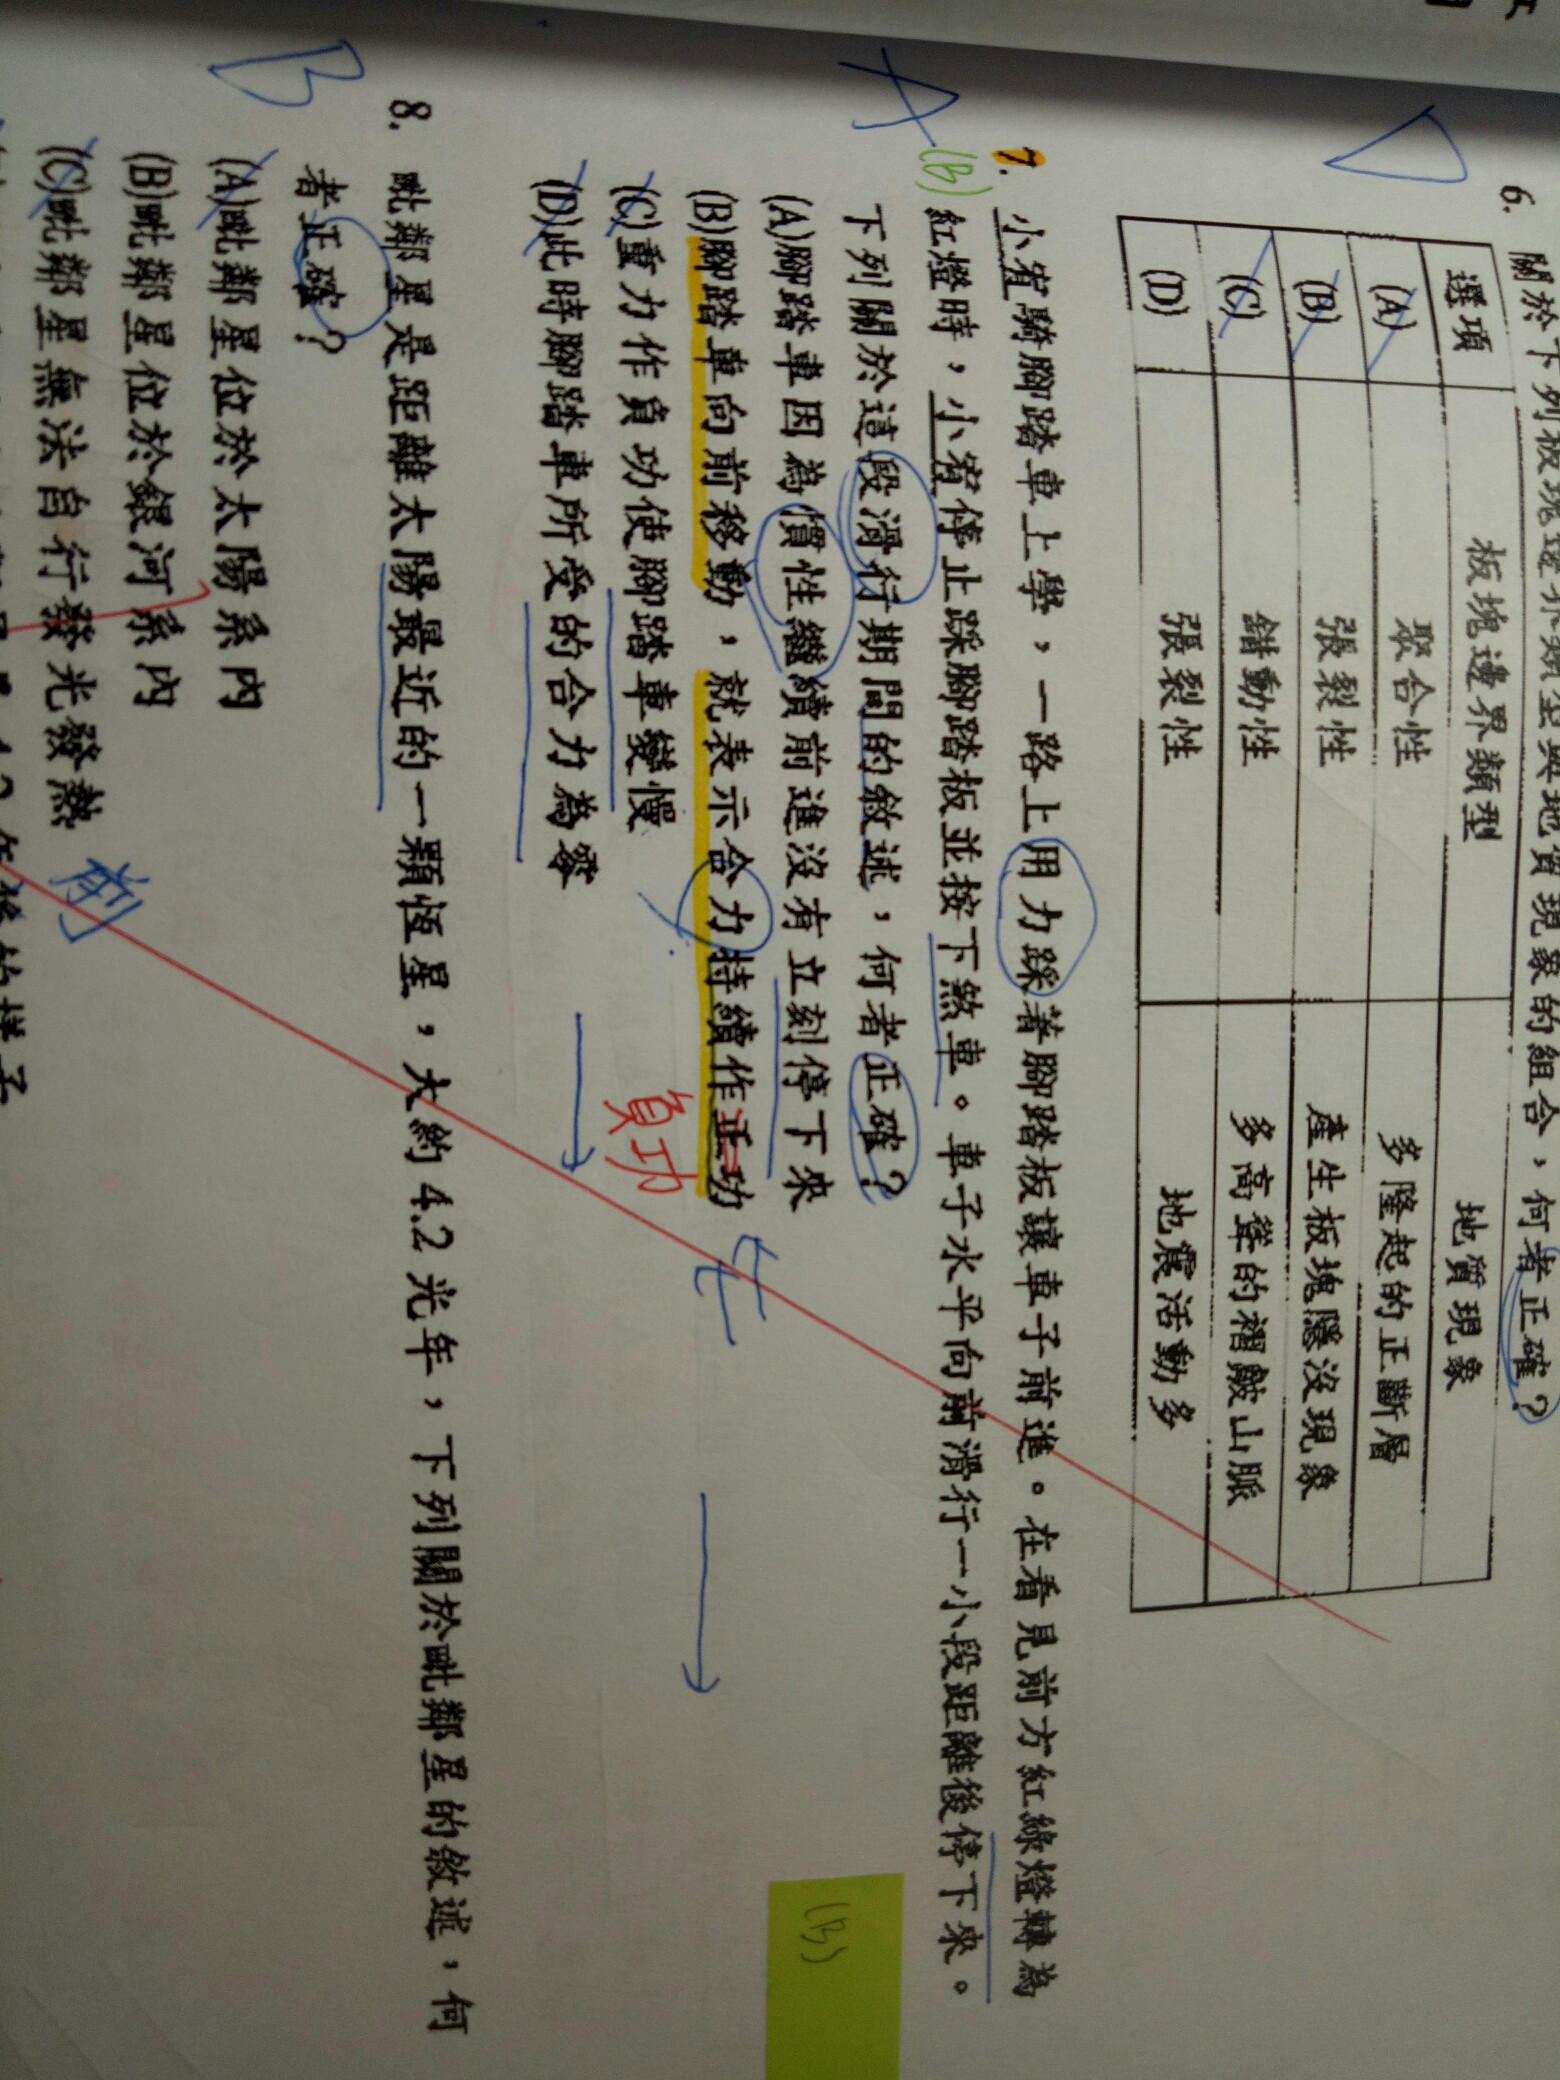 6. 關於下列板塊邊界類型與地質現象的組合，何者正確？
選項 板塊邊界類型 地質現象
(A) 聚合性 多隆起的正斷層
(B) 張裂性 產生板塊隱沒現象
(C) 錯動性 多高聳的褶皺山脈
(D) 張裂性 地震活動多
D
7. 小宥騎腳踏車上學，一路上用力踩著腳踏板讓車子前進。在看見前方紅綠燈轉為
A
(B)
紅燈時，小宥停止踩腳踏板並按下煞車。車子水平向前滑行一小段距離後停下來。
下列關於這段滑行期間的敘述，何者正確？
(A)腳踏車因為慣性繼續前進沒有立刻停下來
(B)腳踏車向前移動，就表示合力持續作正功
負功
(B)
(C)重力作負功使腳踏車變慢
(D)此時腳踏車所受的合力為零
B
8. 毗鄰星是距離太陽最近的一顆恆星，大約 4.2 光年，下列關於毗鄰星的敘述，何
者正確？
(A)毗鄰星位於太陽系內
(B)毗鄰星位於銀河系內
(C)毗鄰星無法自行發光發熱
前